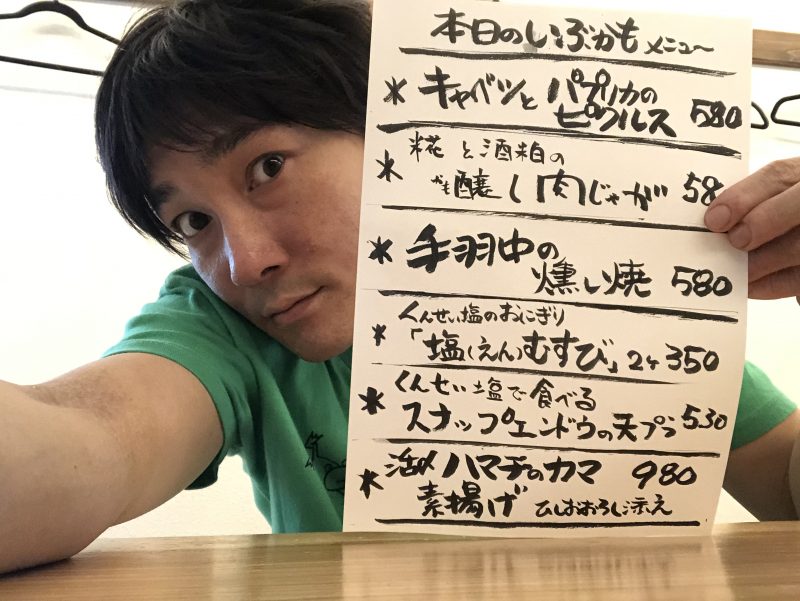 本日のいぶかもメニュー
* キャベツとパプリカの
ピクルス 580
* 糀と酒粕の
かも醸し肉じゃが 58
* 手羽中の
燻し焼 580
* くんせい塩のおにぎり
「塩(えん)むすび」2ケ 350
* くんせい塩で食べる
スナップエンドウの天プラ 530
* 活〆ハマチのカマ 980
素揚げ ひしおおろし添え